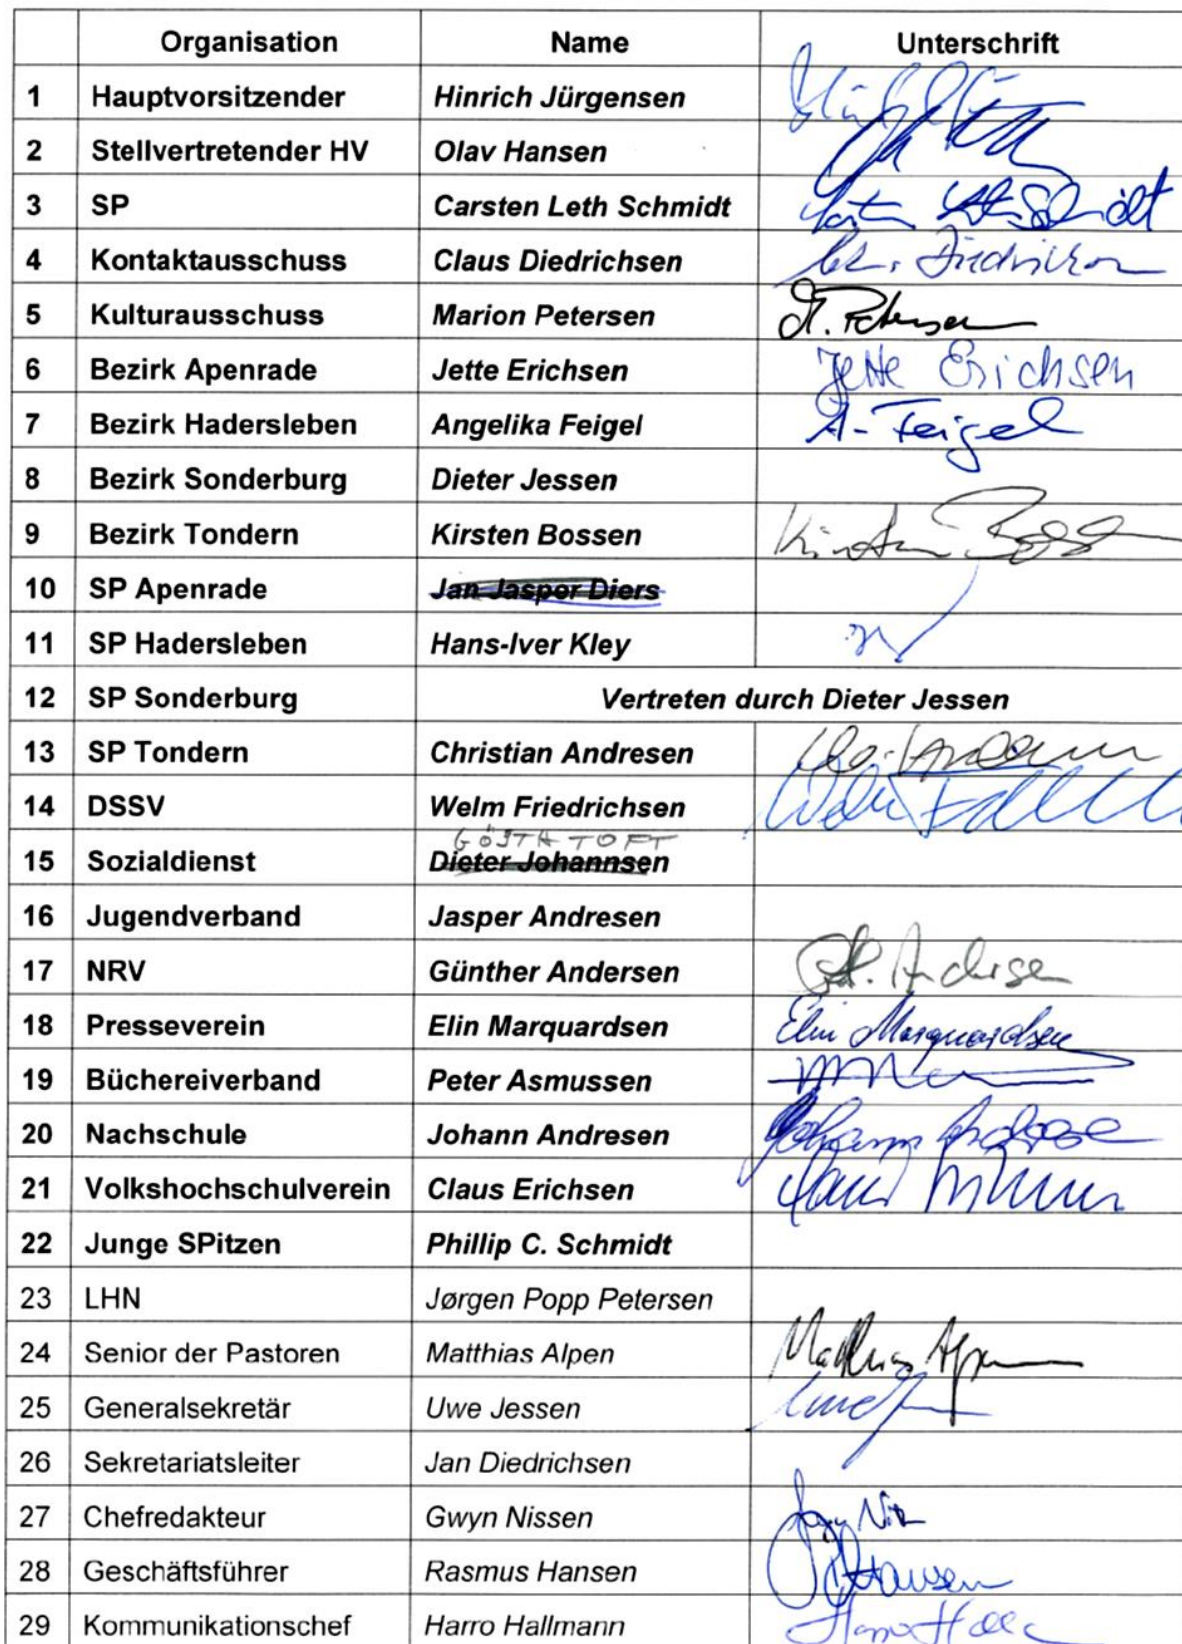 Organisation Name Unterschrift
1 Hauptvorsitzender Hinrich Jürgensen
2 Stellvertretender HV Olav Hansen
3 SP Carsten Leth Schmidt Carsten Leth Schmidt
4 Kontaktausschuss Claus Diedrichsen Cl. Diedrichsen
5 Kulturausschuss Marion Petersen M. Petersen
6 Bezirk Apenrade Jette Erichsen Jette Erichsen
7 Bezirk Hadersleben Angelika Feigel A- Feigel
8 Bezirk Sonderburg Dieter Jessen
9 Bezirk Tondern Kirsten Bossen Kirsten Bossen
10 SP Apenrade Jan Jasper Diers
11 SP Hadersleben Hans-Iver Kley
12 SP Sonderburg Vertreten durch Dieter Jessen
13 SP Tondern Christian Andresen
14 DSSV Welm Friedrichsen
GÖSTA TOFT
15 Sozialdienst Dieter Johannsen
16 Jugendverband Jasper Andresen
17 NRV Günther Andersen G. Andersen
18 Presseverein Elin Marquardsen Elin Marquardsen
19 Büchereiverband Peter Asmussen
20 Nachschule Johann Andresen Johann Andresen
21 Volkshochschulverein Claus Erichsen
22 Junge SPitzen Phillip C. Schmidt
23 LHN Jørgen Popp Petersen
24 Senior der Pastoren Matthias Alpen Matthias Alpen
25 Generalsekretär Uwe Jessen
26 Sekretariatsleiter Jan Diedrichsen
27 Chefredakteur Gwyn Nissen
28 Geschäftsführer Rasmus Hansen
29 Kommunikationschef Harro Hallmann